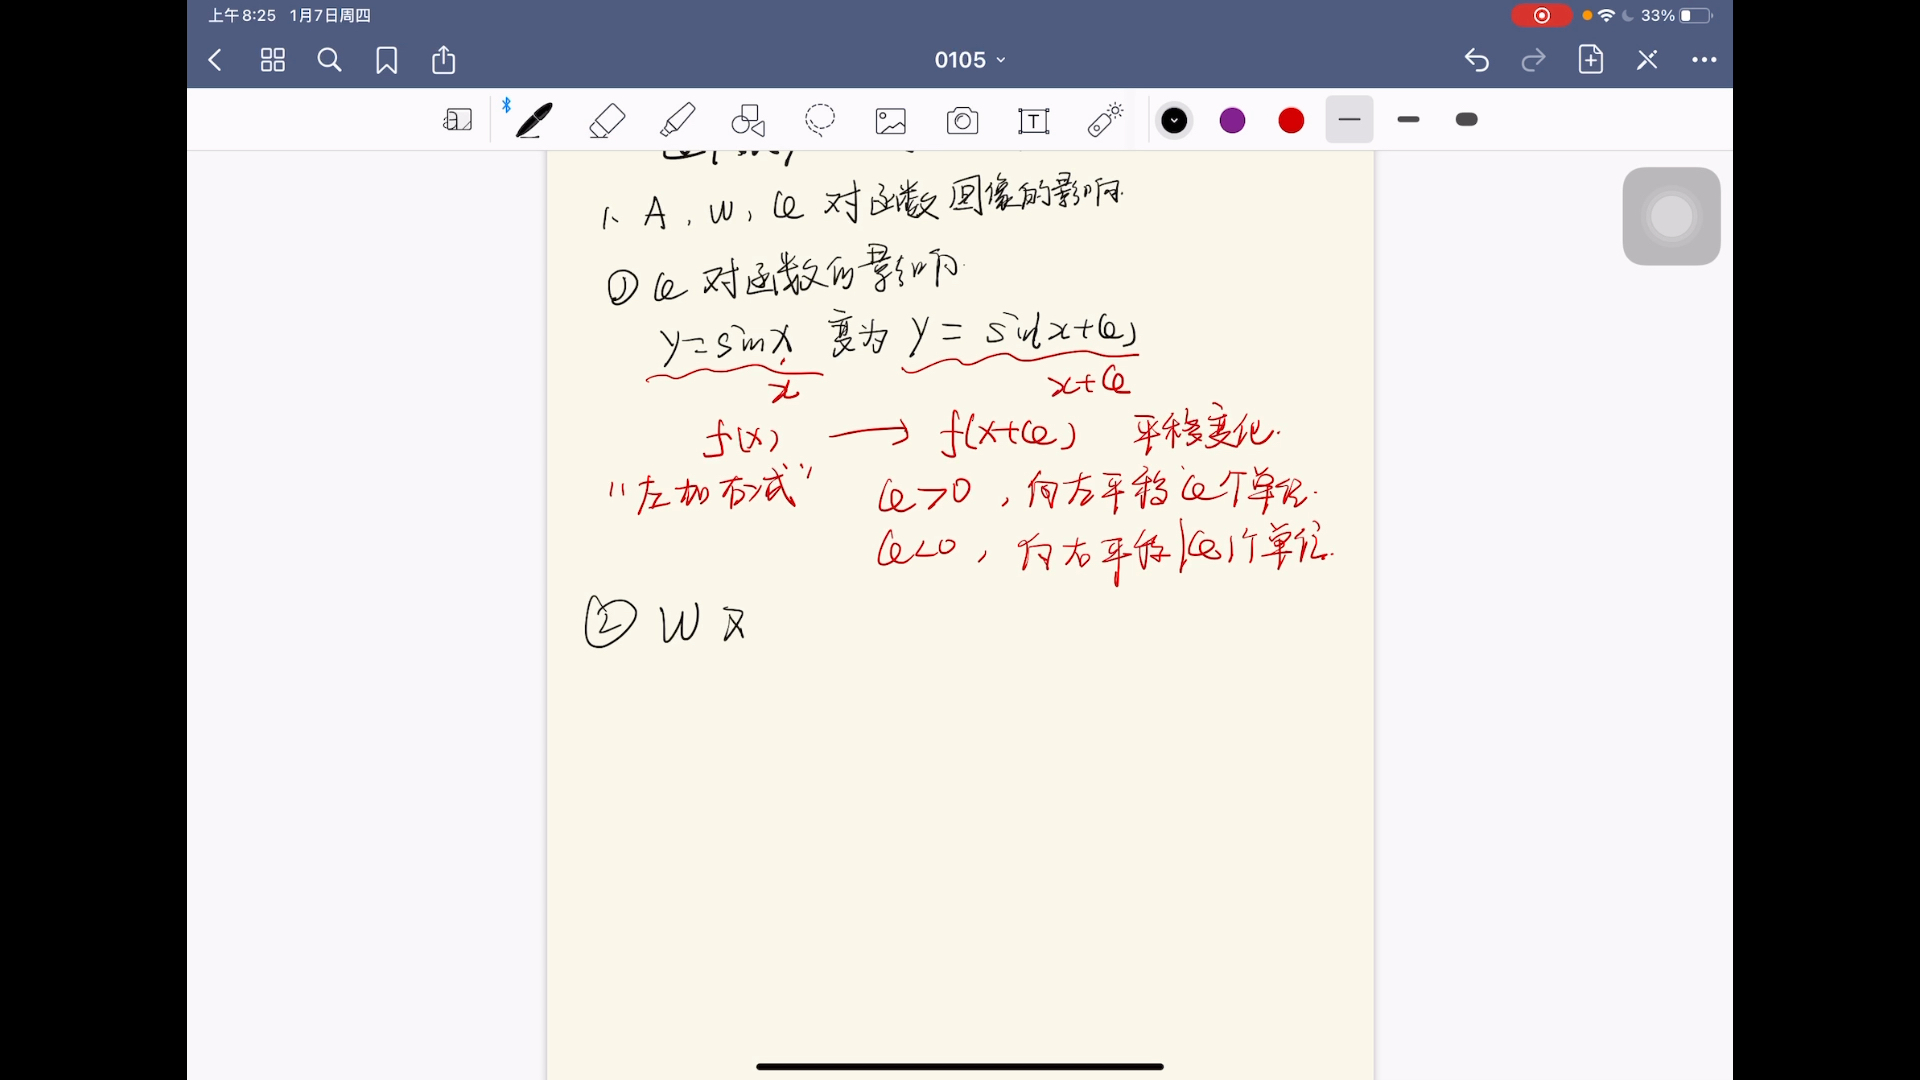 上午8:25 1月7日周四
33%
0105
1、A，W，φ 对函数图像的影响.
① φ 对函数的影响.
y=sinx 变为 y=sin(x+φ)
x x+φ
f(x) → f(x+φ) 平移变化.
"左加右减" φ>0，向左平移φ个单位.
φ<0，向右平移|φ|个单位.
② W